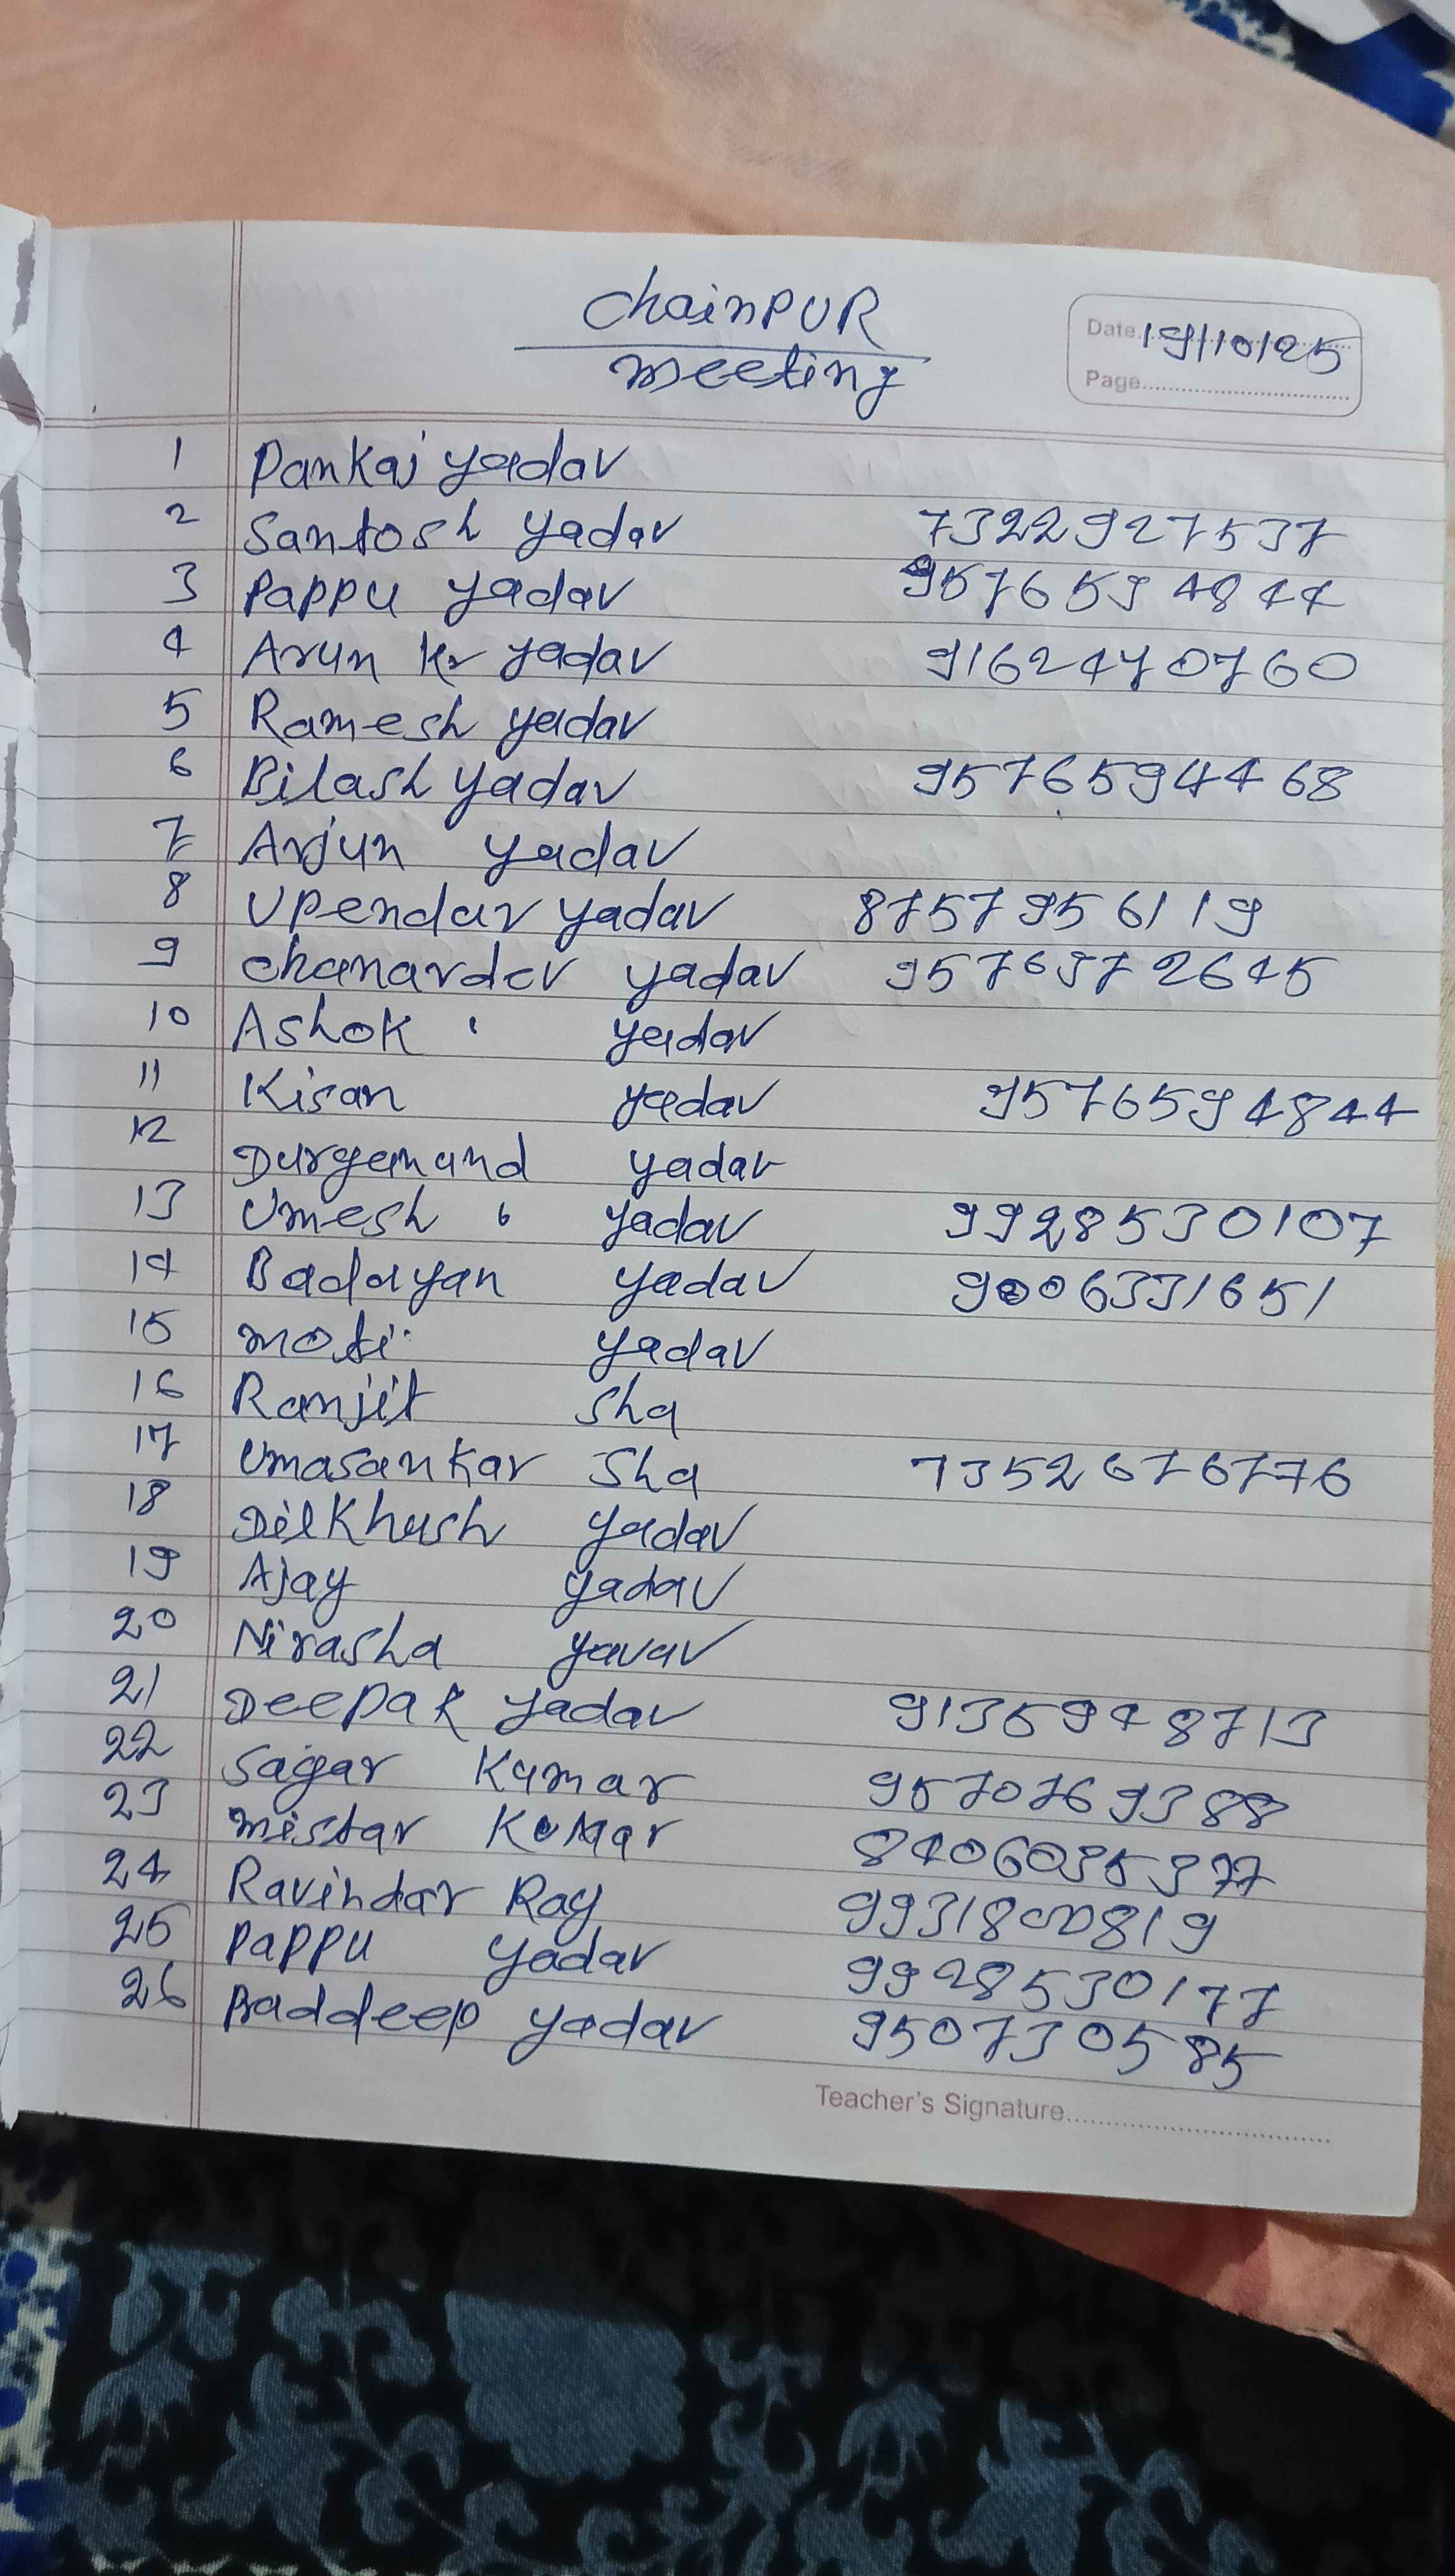 ChainPUR
meeting
Date 19/10/25
Page
1 Pankaj yadav
2 Santosh yadav 7322927537
3 Pappu yadav 9576594844
4 Arun kr yadav 9162470760
5 Ramesh yadav
6 Bilash yadav 9576594468
7 Arjun yadav
8 Upendar yadav 8757956119
9 chanardev yadav 9576972645
10 Ashok yadav
11 Kisan yadav 9576594844
12 Durgemand yadav
13 Umesh yadav 9928530107
14 Badayan yadav 9006331651
15 moti yadav
16 Ranjit Sha
17 Umasankar Sha 7352676776
18 Dilkhush yadav
19 Ajay yadav
20 Nirasha yavav
21 Deepak yadav 9135948713
22 Sagar Kumar 9570769388
23 mistar Kumar 8406035377
24 Ravindar Ray 9931800819
25 Pappu yadav 9928530177
26 Baddeep yadav 9507730585
Teacher's Signature